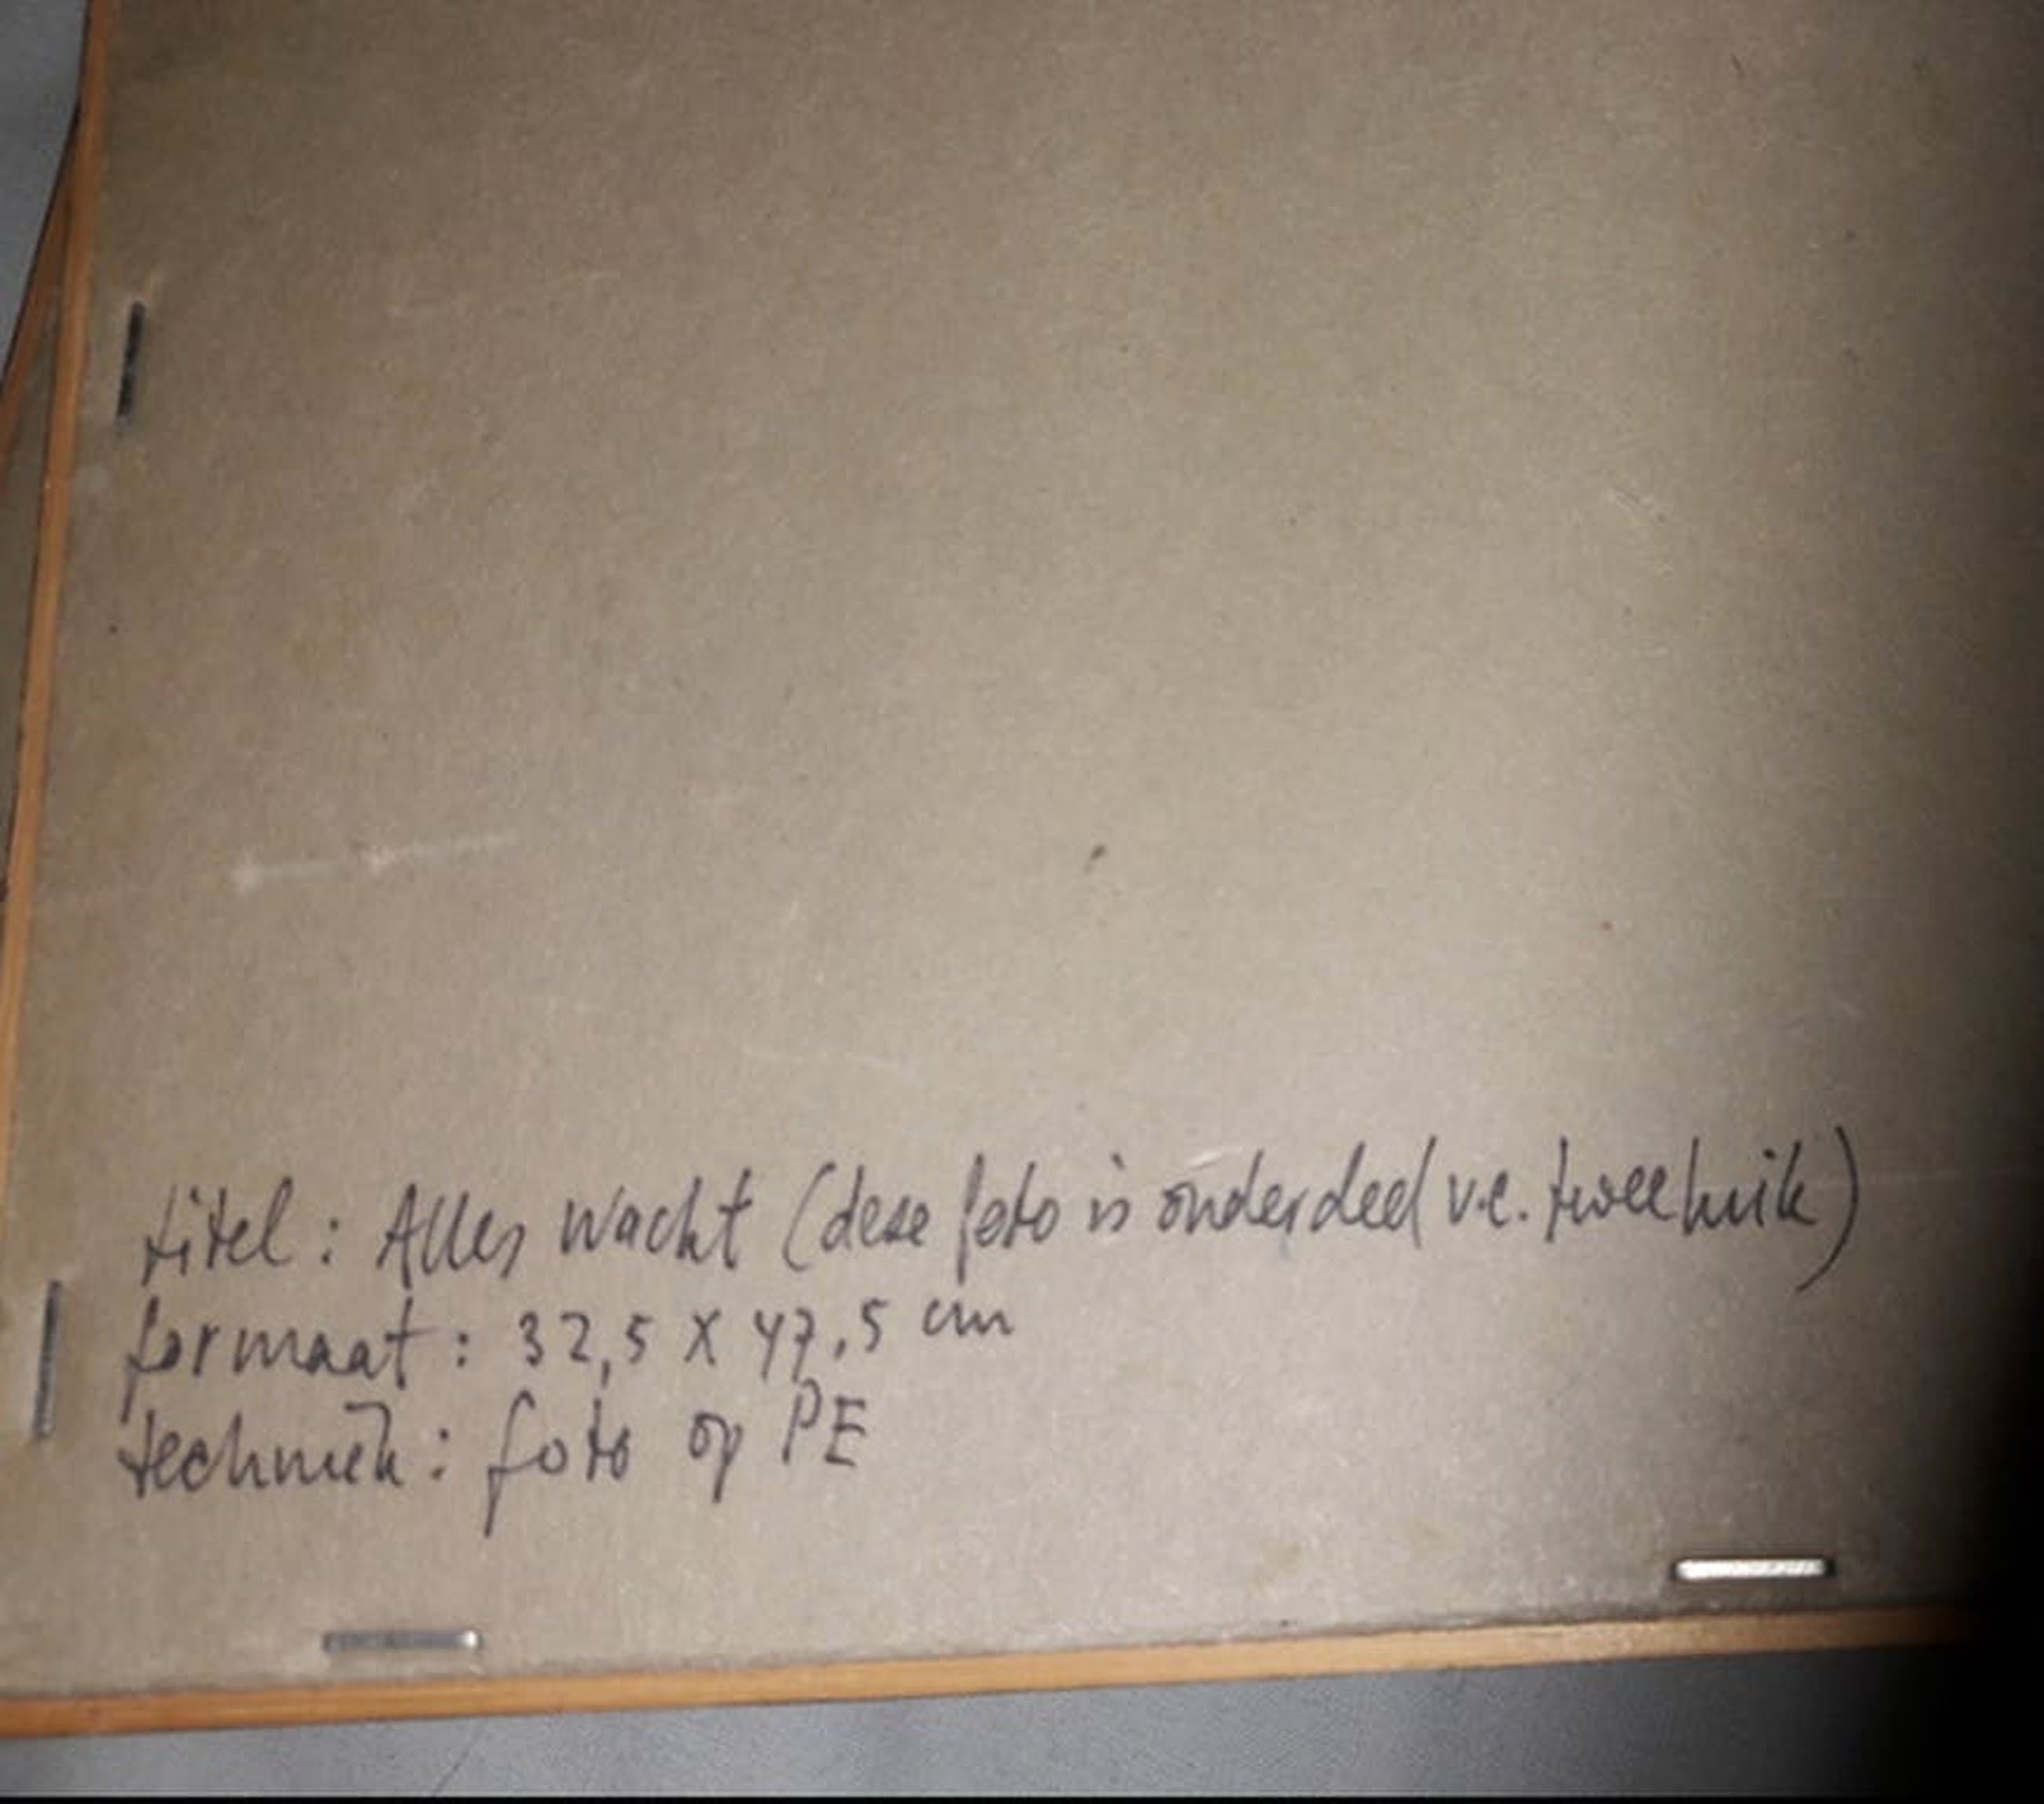 titel: Alles wacht (deze foto is onderdeel v.e. tweeluik)
formaat: 32,5 x 47,5 cm
techniek: foto op PE